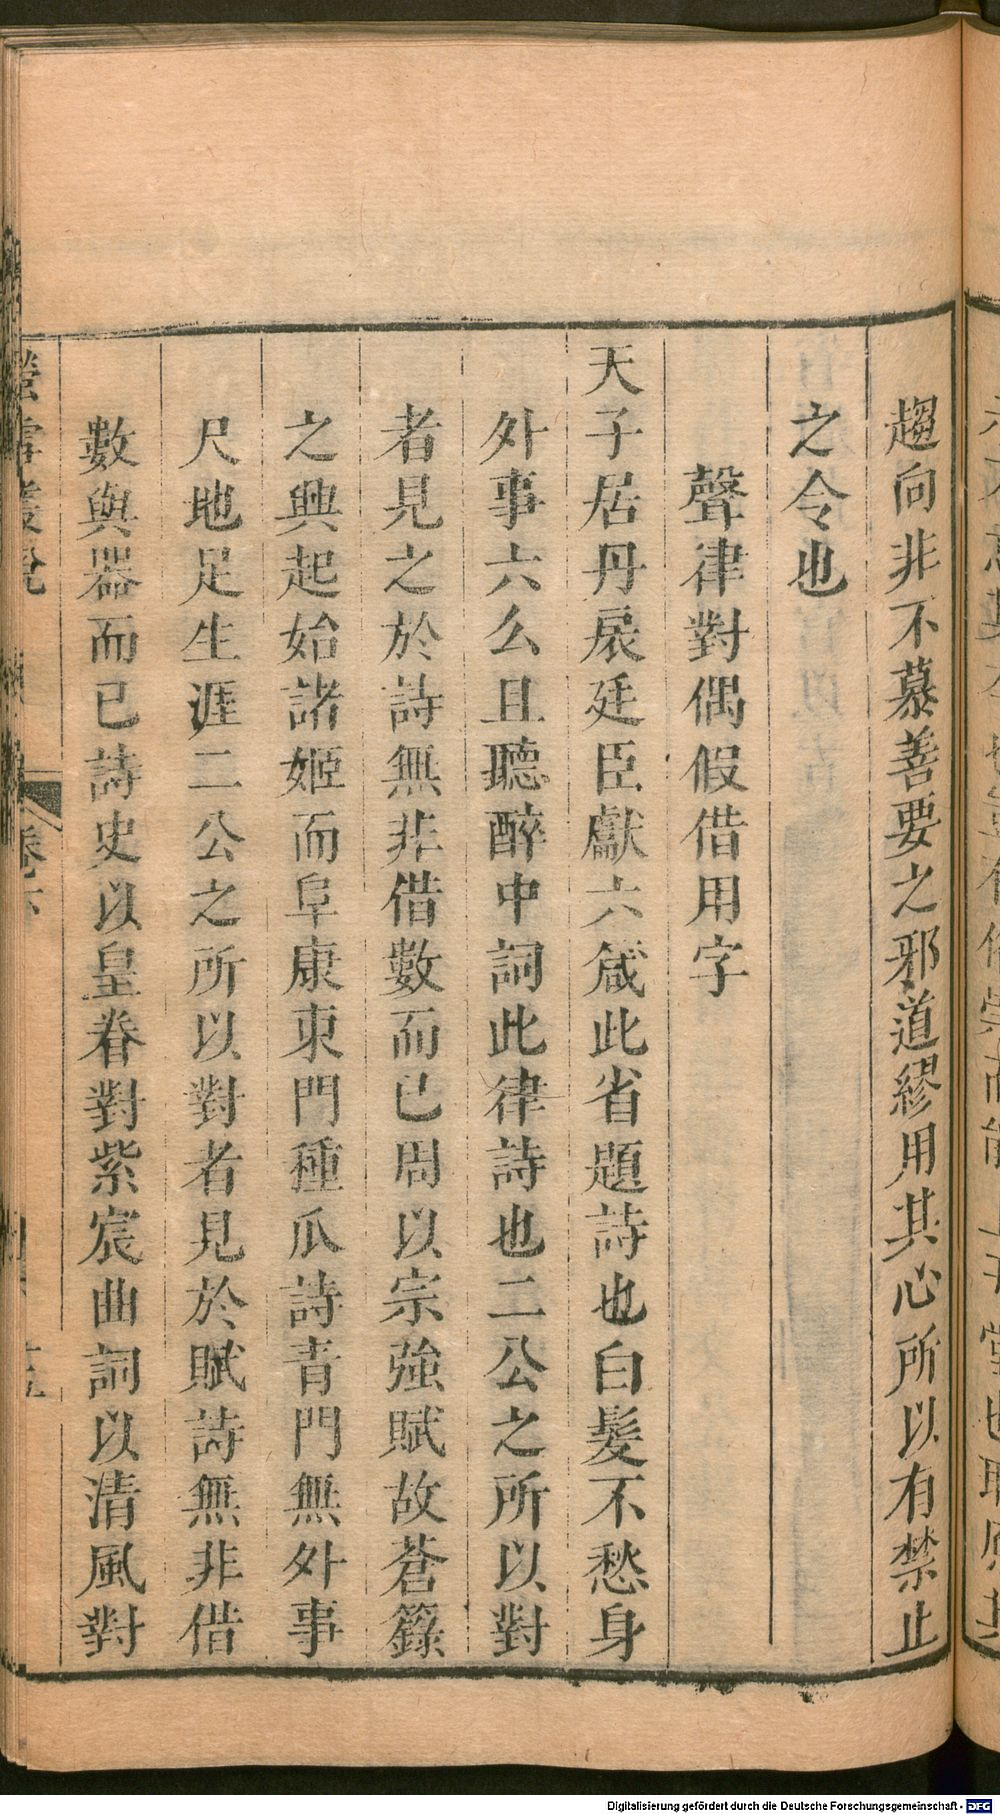 趨向非不慕善要之邪道繆用其心所以有禁止
之令也
聲律對偶假借用字
天子居丹扆廷臣獻六箴此省題詩也白髮不愁身
外事六么且聽醉中詞此律詩也二公之所以對
者見之於詩無非借數而已周以宗強賦故蒼籙
之興起始諸姬而阜康東門種瓜詩青門無外事
尺地足生涯二公之所以對者見於賦詩無非借
數與器而已詩史以皇眷對紫宸曲詞以清風對
螢雪叢說
卷下
十五
Digitalisierung gefördert durch die Deutsche Forschungsgemeinschaft - DFG